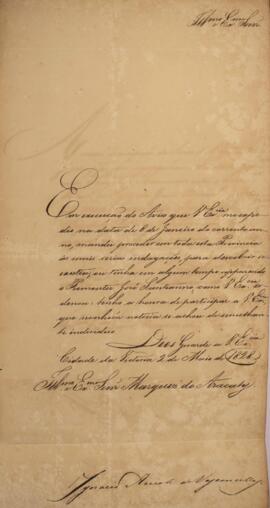 Illmo. e Exmo. Senr.
Em execução do Aviso que V. Exa. me expe
dio na data de 8 de Janeiro do corrente an
no, mandei proceder em toda esta Provincia
ás mais serias indagações para descobrir se
existe, ou tinha em algum tempo apparecido
o Prisioneiro José
denou: tenho a honra de participar a V. Exa.
que nenhuma noticia se achou de semelhan
te individuo.
Deos Guarde a V. Exa.
Cidade da Victoria 2 de Maio de 1828.
Illmo. e Exmo. Senr. Marquez do Aracaty
Ignacio Accioli de Vasconcellos